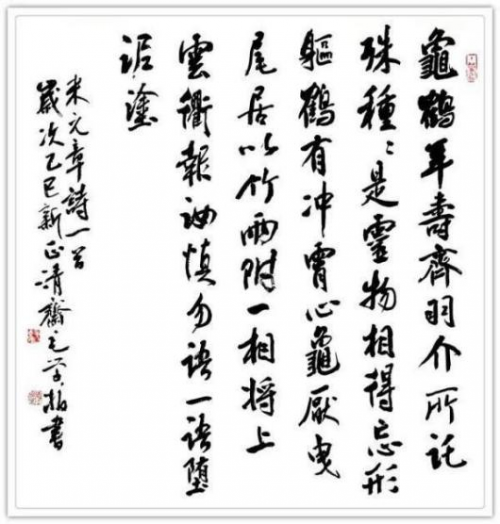 龜鶴年壽齊羽介所託
殊種〻是靈物相得忘形
軀鶴有冲霄心龜厭曳
尾居以竹兩附一相將上
雲衢報汝慎勿語一語墮
泥塗
米元章詩一首
歲次乙巳新正清齋毛学柏書